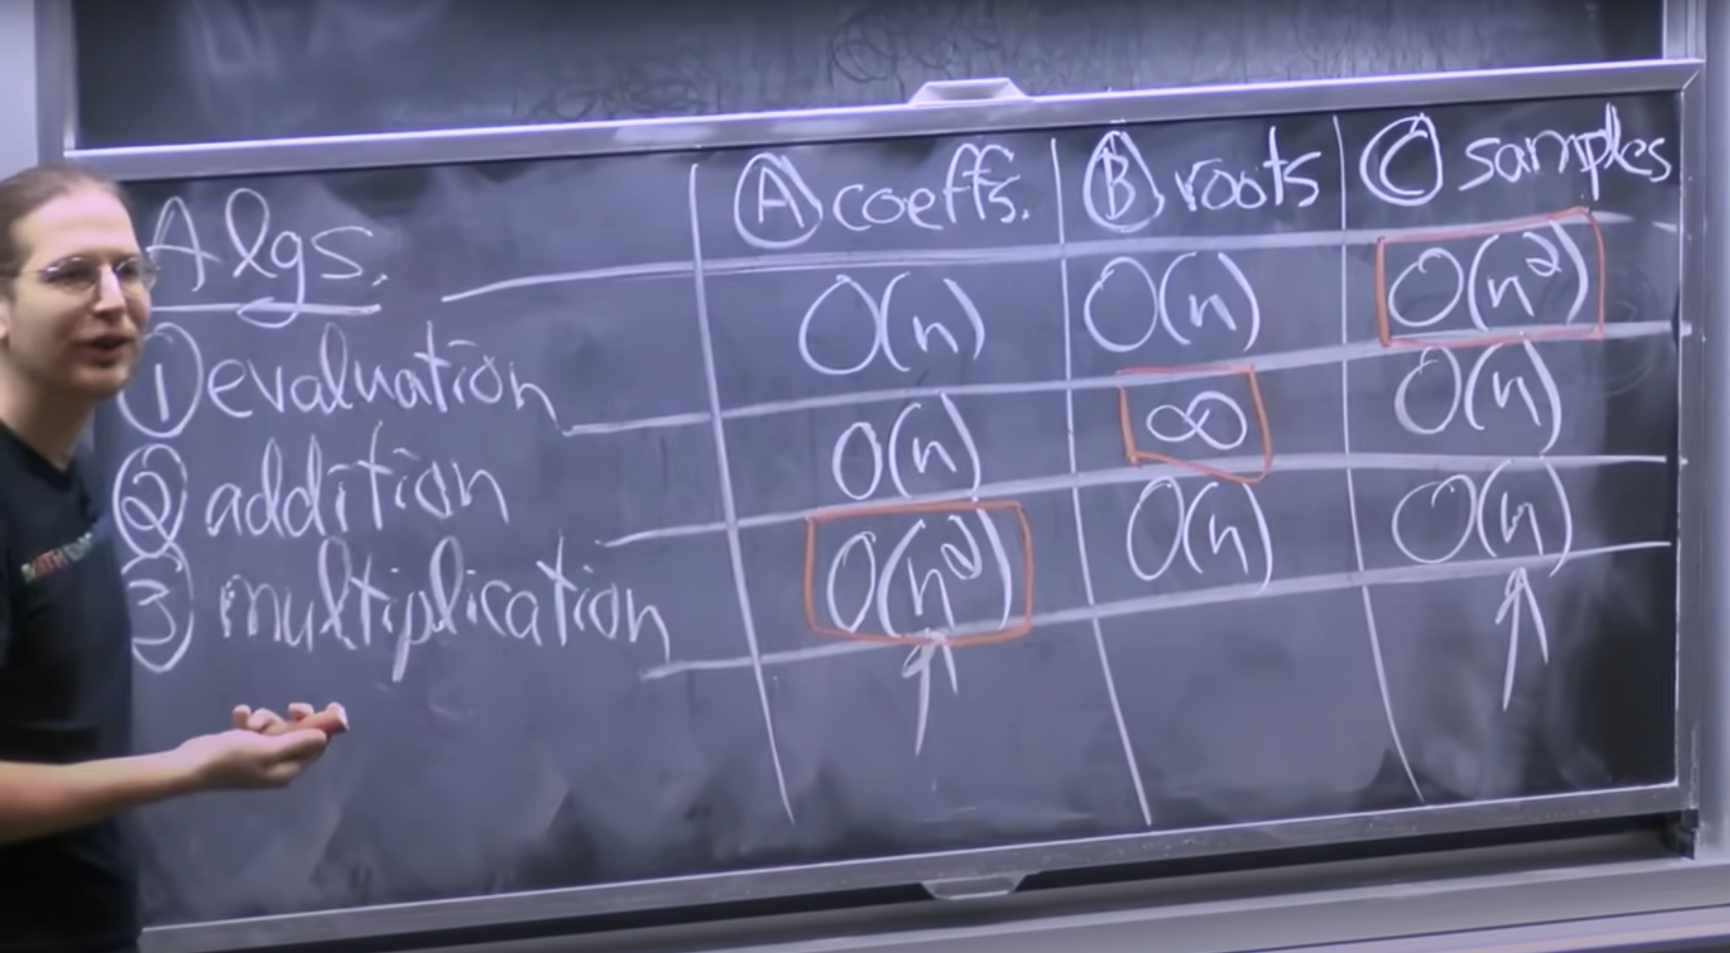 Ⓐ coeffs. Ⓑ roots Ⓒ samples
Algs.
① evaluation O(n) O(n) O(n²)
② addition O(n) ∞ O(n)
③ multiplication O(n²) O(n) O(n)